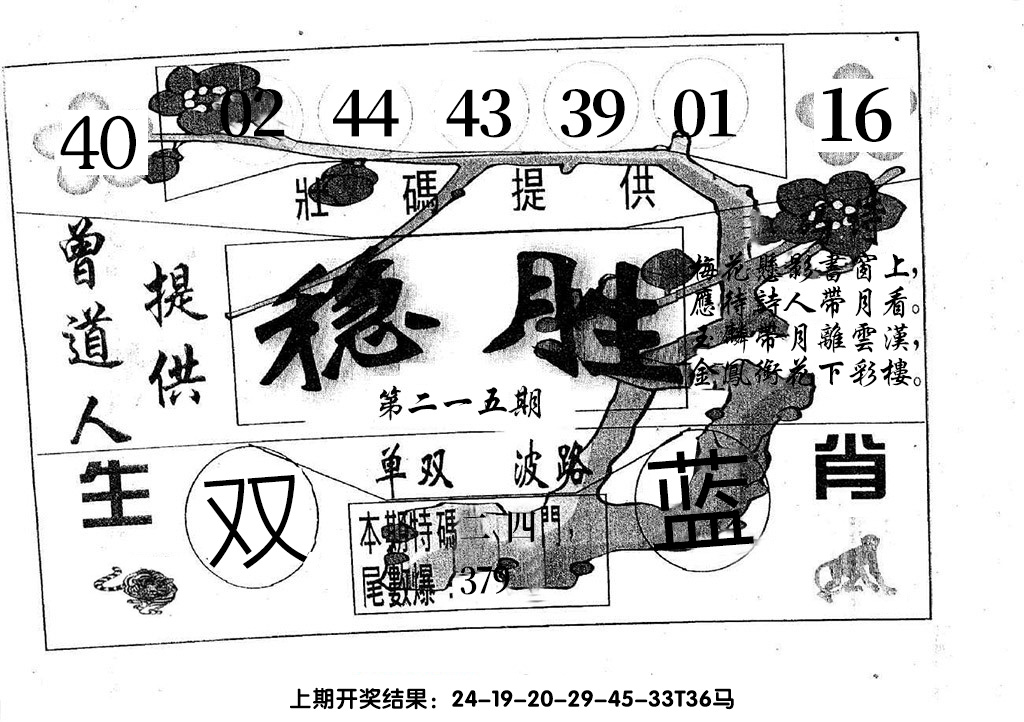 40 02 44 43 39 01 16
壯碼提供
曾道人
提供
稳胜
第二一五期
梅花懸影書窗上，
應待詩人帶月看。
玉麟帶月離雲漢，
金鳳銜花下彩樓。
单双 波路
生 双
蓝 肖
本期特碼二、四門，
尾數爆：379
上期开奖结果：24-19-20-29-45-33T36马